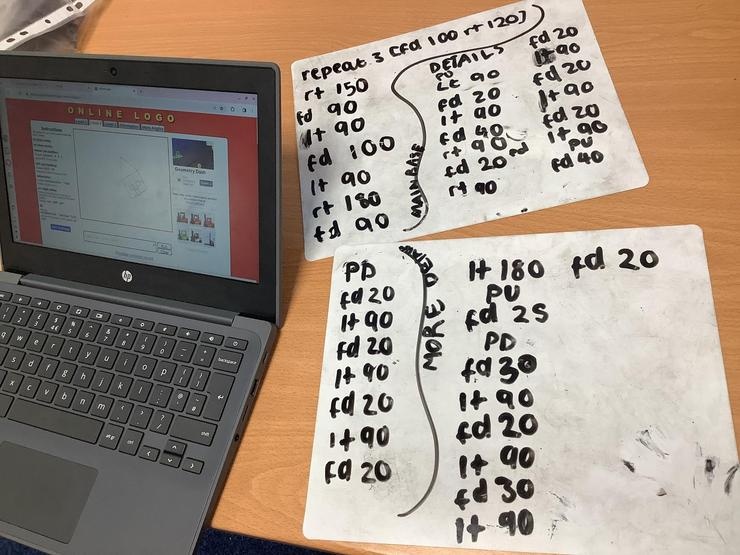 ONLINE LOGO
Instructions
Geometry Dash
hp
repeat 3 [fd 100 rt 120]
rt 150
fd 90
lt 90
fd 100
lt 90
rt 180
fd 90
MAIN BASE
DETAILS
PU
Lt 90
fd 20
lt 90
fd 40
rt 90
fd 20
rt 90
fd 20
lt 90
fd 20
lt 90
fd 20
lt 90
PU
fd 40
PD
fd 20
lt 90
fd 20
lt 90
fd 20
lt 90
fd 20
MORE
lt 180
PU
fd 25
PD
fd 30
lt 90
fd 20
lt 90
fd 30
lt 90
fd 20